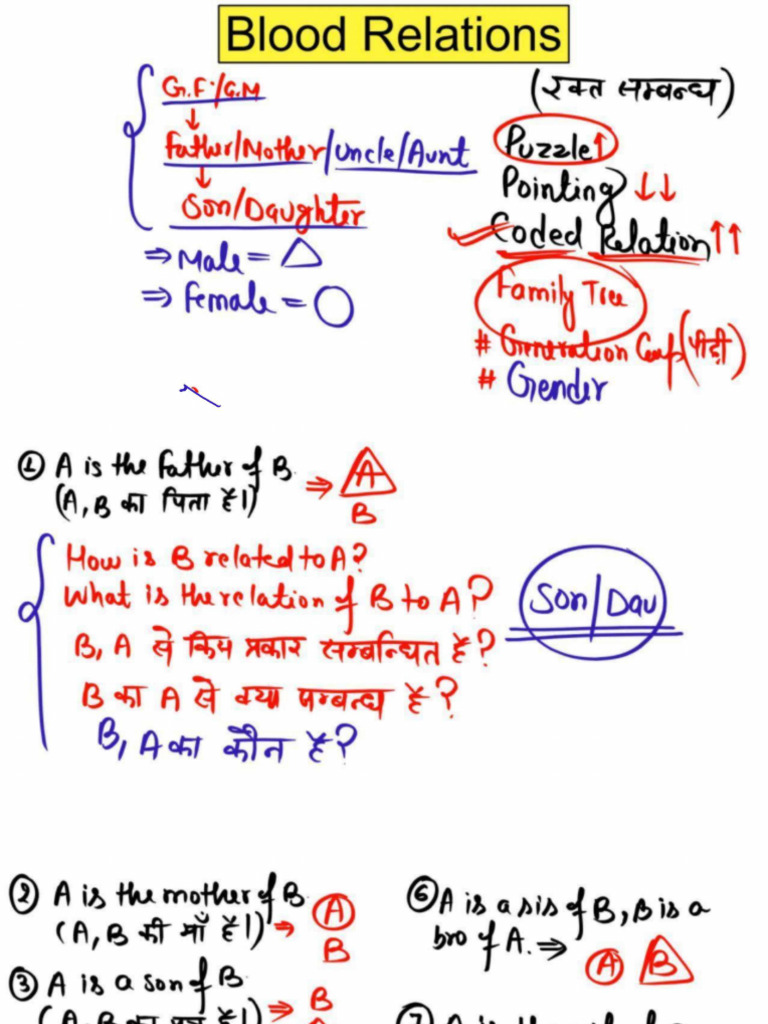 Blood Relations
G.F/G.M
Father/Mother/Uncle/Aunt
Son/Daughter
⇒ Male = △
⇒ Female = ○
(रक्त सम्बन्ध)
Puzzle↑
Pointing ↓↓
✓ Coded Relation ↑↑
Family Tree
# Generation Gap (पीढ़ी)
# Gender
① A is the father of B. ⇒ A
(A, B का पिता है।) B
How is B related to A?
What is the relation of B to A?
B, A से किस प्रकार सम्बन्धित है?
B का A से क्या सम्बन्ध है?
B, A का कौन है?
Son/Dau
② A is the mother of B.
(A, B की माँ है।) ⇒ A
B
③ A is a son of B.
⇒ B
⑥ A is a sis of B, B is a
bro of A. ⇒ A B